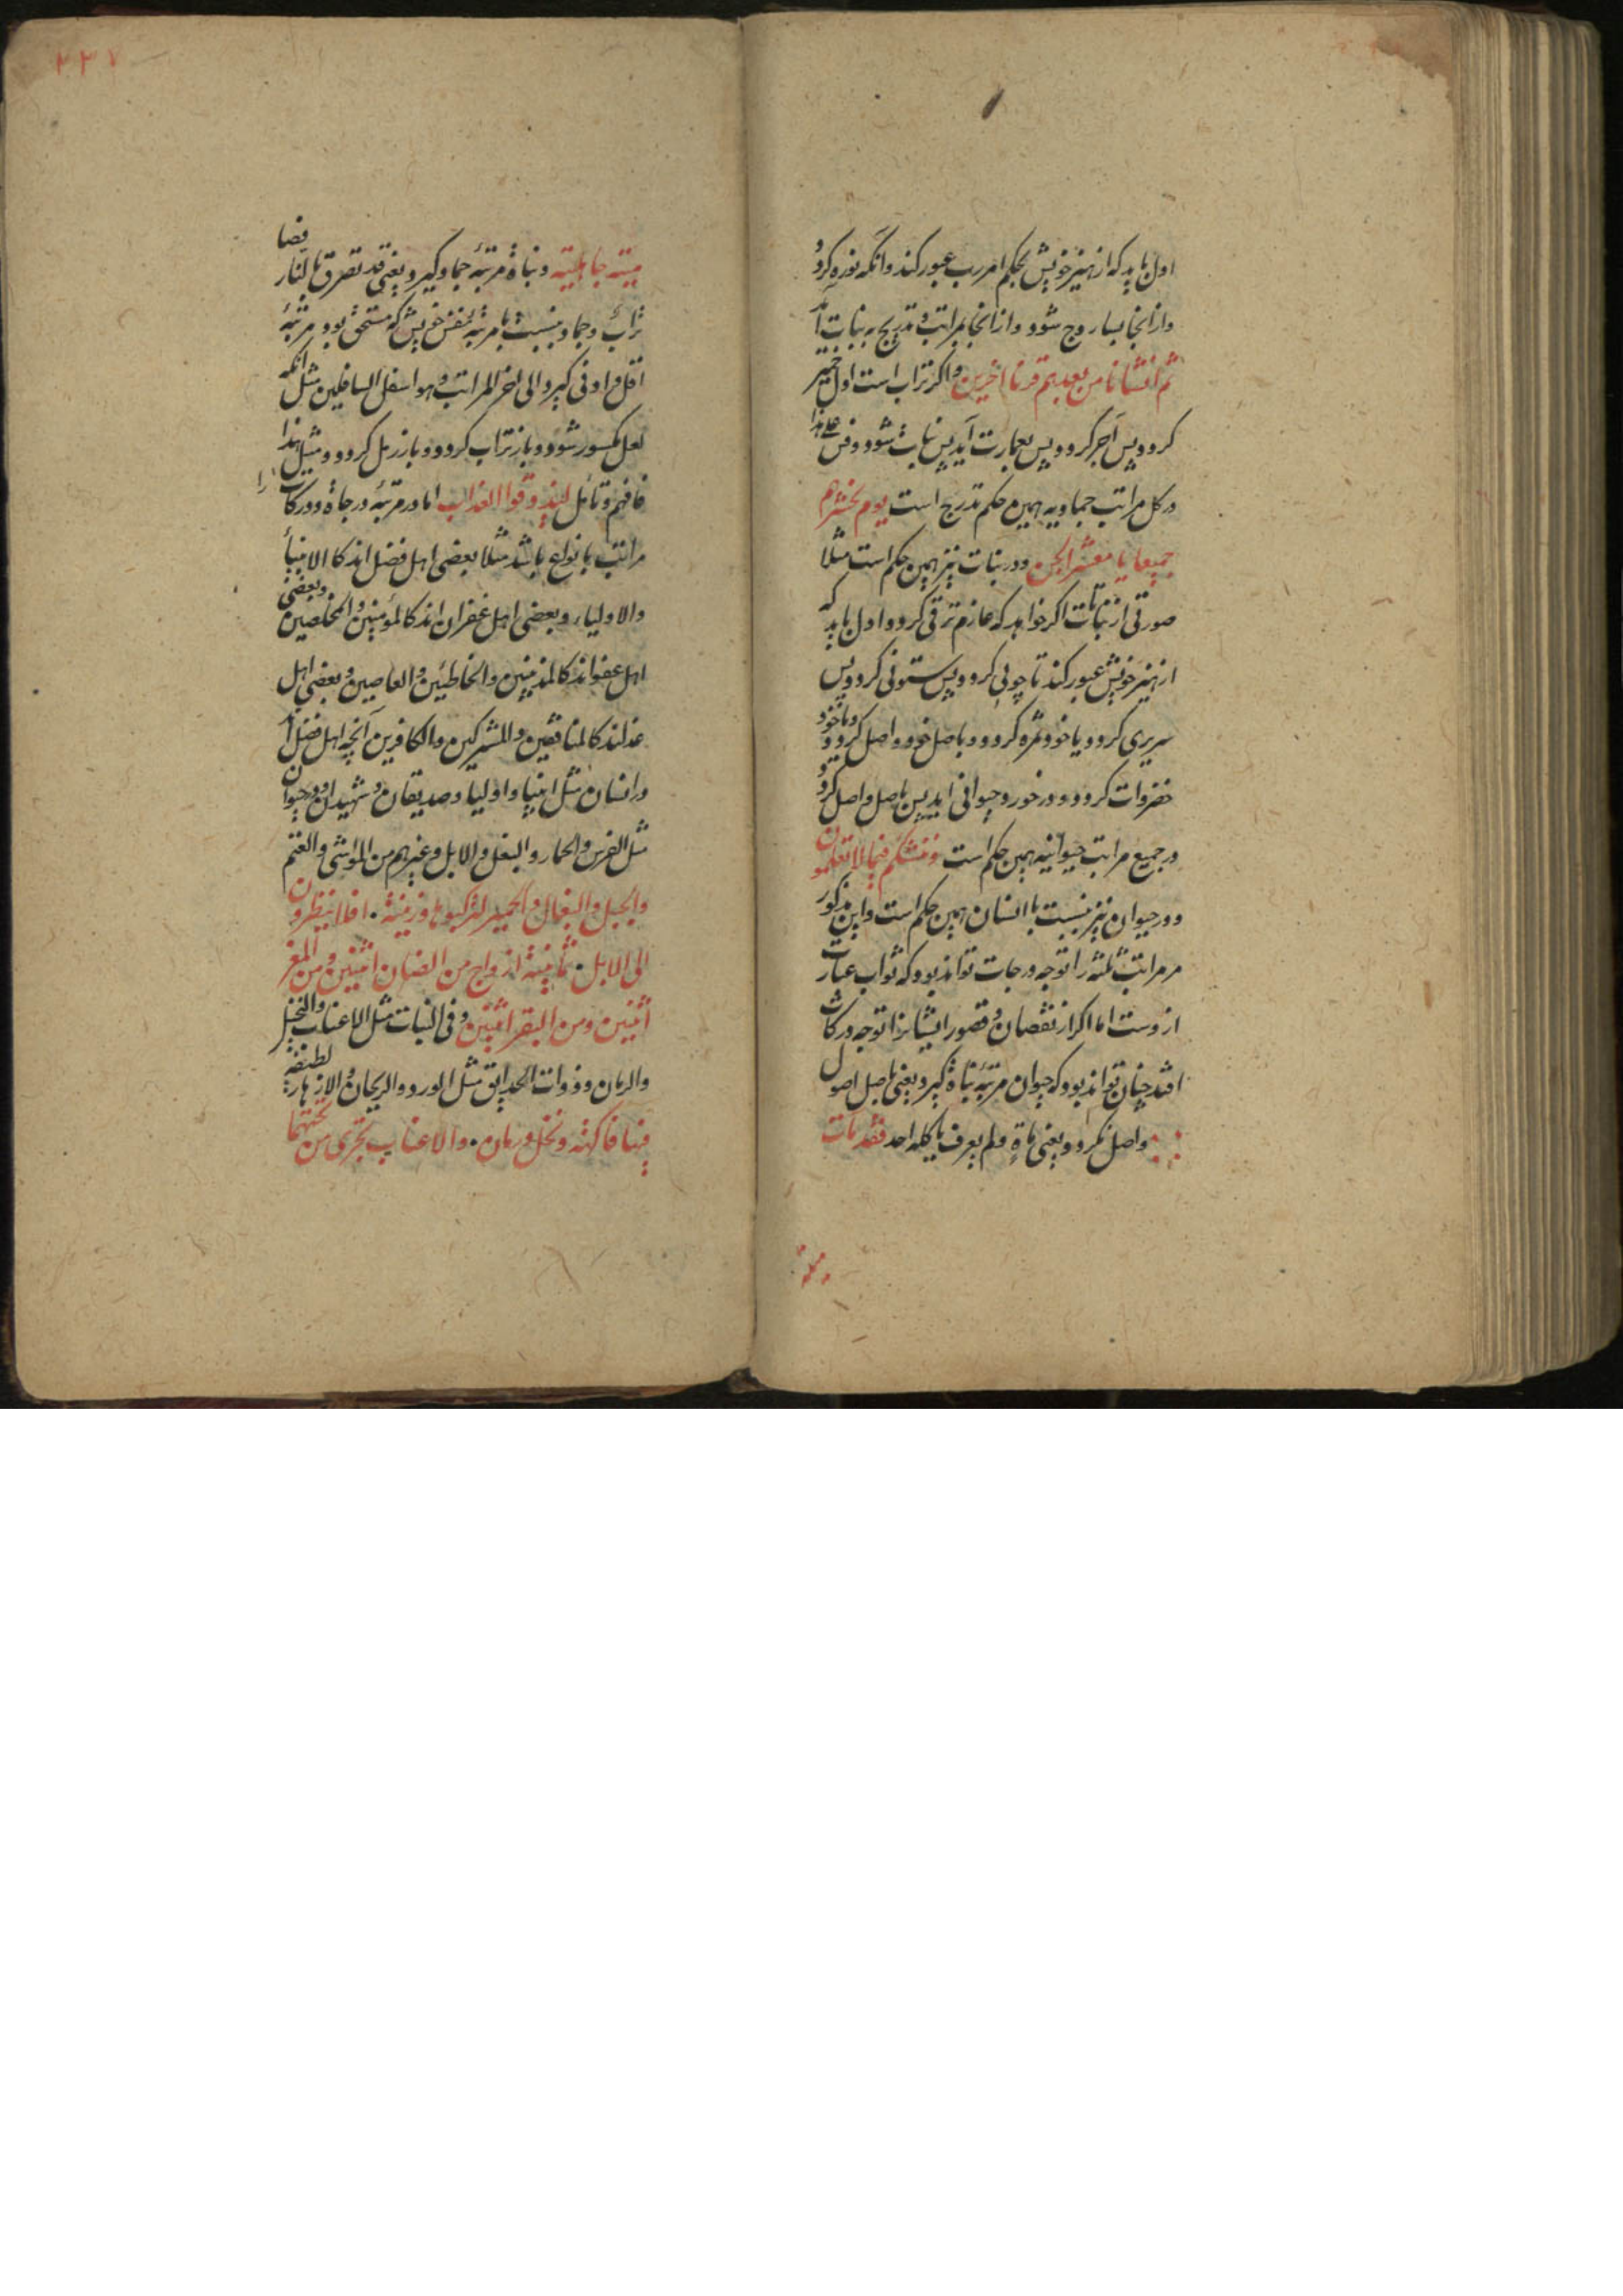 اول باید که از هنیز خویش بحکم امر رب عبور کند وانگه نوره کردد
واز انجا بساروج شود واز انجا بمراتب و تدریج به نبات آید
ثم انشأنا من بعدهم قرنا اخرین واکر تراب است اول خمیر
کردد پس آجر کردد پس بعمارت آید پس نبات شود وقس علی هذا
در کل مراتب جمادیه همین حکم تدریج است یوم نحشرهم
جمیعا یا معشر الجن ودر نبات نیز همین حکم است مثلا
صورتی از نباتات اکر خواهد که عازم ترقی کردد اول باید که
از هنیز خویش عبور کند تا چوبی کردد پس ستونی کردد پس
سریری کردد ویا خود ثمره کردد وباصل خود واصل کردد ویا خود
خضروات کردد ودر خورد حیوانی اید پس باصل واصل کردد
در جمیع مراتب حیوانیه همین حکم است وننشئکم فیما لا تعلمون
ودر حیوان نیز نسبت با انسان همین حکم است واین مذکور
مر مراتب ثلثه را توجه درجات تواند بود که ثواب عبارت
ازوست اما اکر از نقصان وقصور ایشانرا توجه درکات
افتد چنان تواند بود که حیوان مرتبه نباة کیرد یعنی باصل اصول
واصل نکردد یعنی مات ولم یعرف باکله احد فقد مات
میتة جاهلیة ونباة مرتبه جماد کیرد یعنی قد تصرق بالنار فصار
تراب وجماد نسبت با مرتبه نفس خویش که مستحق بود مرتبه
اقل وادنی کیرد الی اخر المراتب وهو اسفل السافلین مثل آنکه
لعل مکسور شود وباز تراب کردد وباز رمل کردد ومثل هذا
فافهم وتأمل لیذوقوا العذاب اما در مرتبه درجاة ودرکات را
مراتب بانواع باشد مثلا بعضی اهل فضل اند کالانبیأ
والاولیاء وبعضی اهل غفران اند کالمؤمنین والمخلصین وبعضی
اهل عفو اند کالمذنبین والخاطئین والعاصین وبعضی اهل
عذاند کالمنافقین والمشرکین والکافرین آنچه اهل فضل اند
در انسان مثل انبیا واولیا وصدیقان وشهیدان ودر حیوان
مثل الفرس والحمار والبغل والابل وغیرهم من المواشی والغنم
والخیل والبغال والحمیر لترکبوها وزینة . افلا ینظرون
الی الابل . ثمانیة ازواج من الضان اثنین ومن المعز
اثنین ومن البقر اثنین وفی النبات مثل الاعناب والنخیل
والرمان وذوات الحدایق مثل الورد والریحان والازهار لطیفة
فیها فاکهة ونخل ورمان . والاعناب تجری من تحتهما